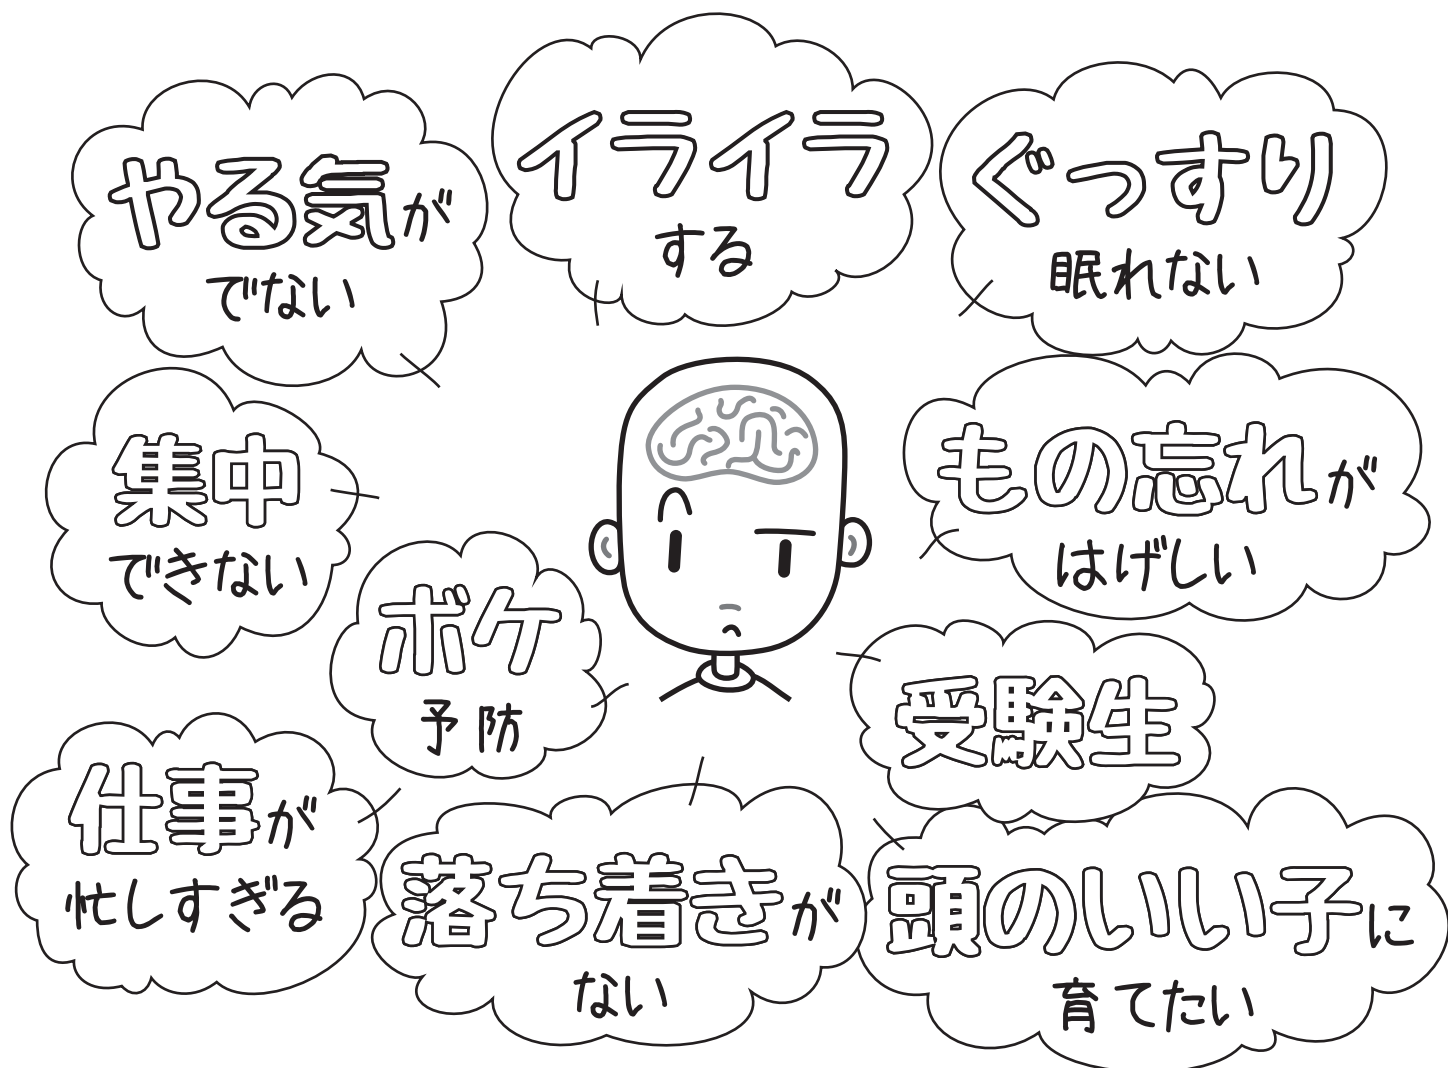 やる気が
でない
イライラ
する
ぐっすり
眠れない
集中
できない
もの忘れが
はげしい
ボケ
予防
受験生
仕事が
忙しすぎる
落ち着きが
ない
頭のいい子に
育てたい